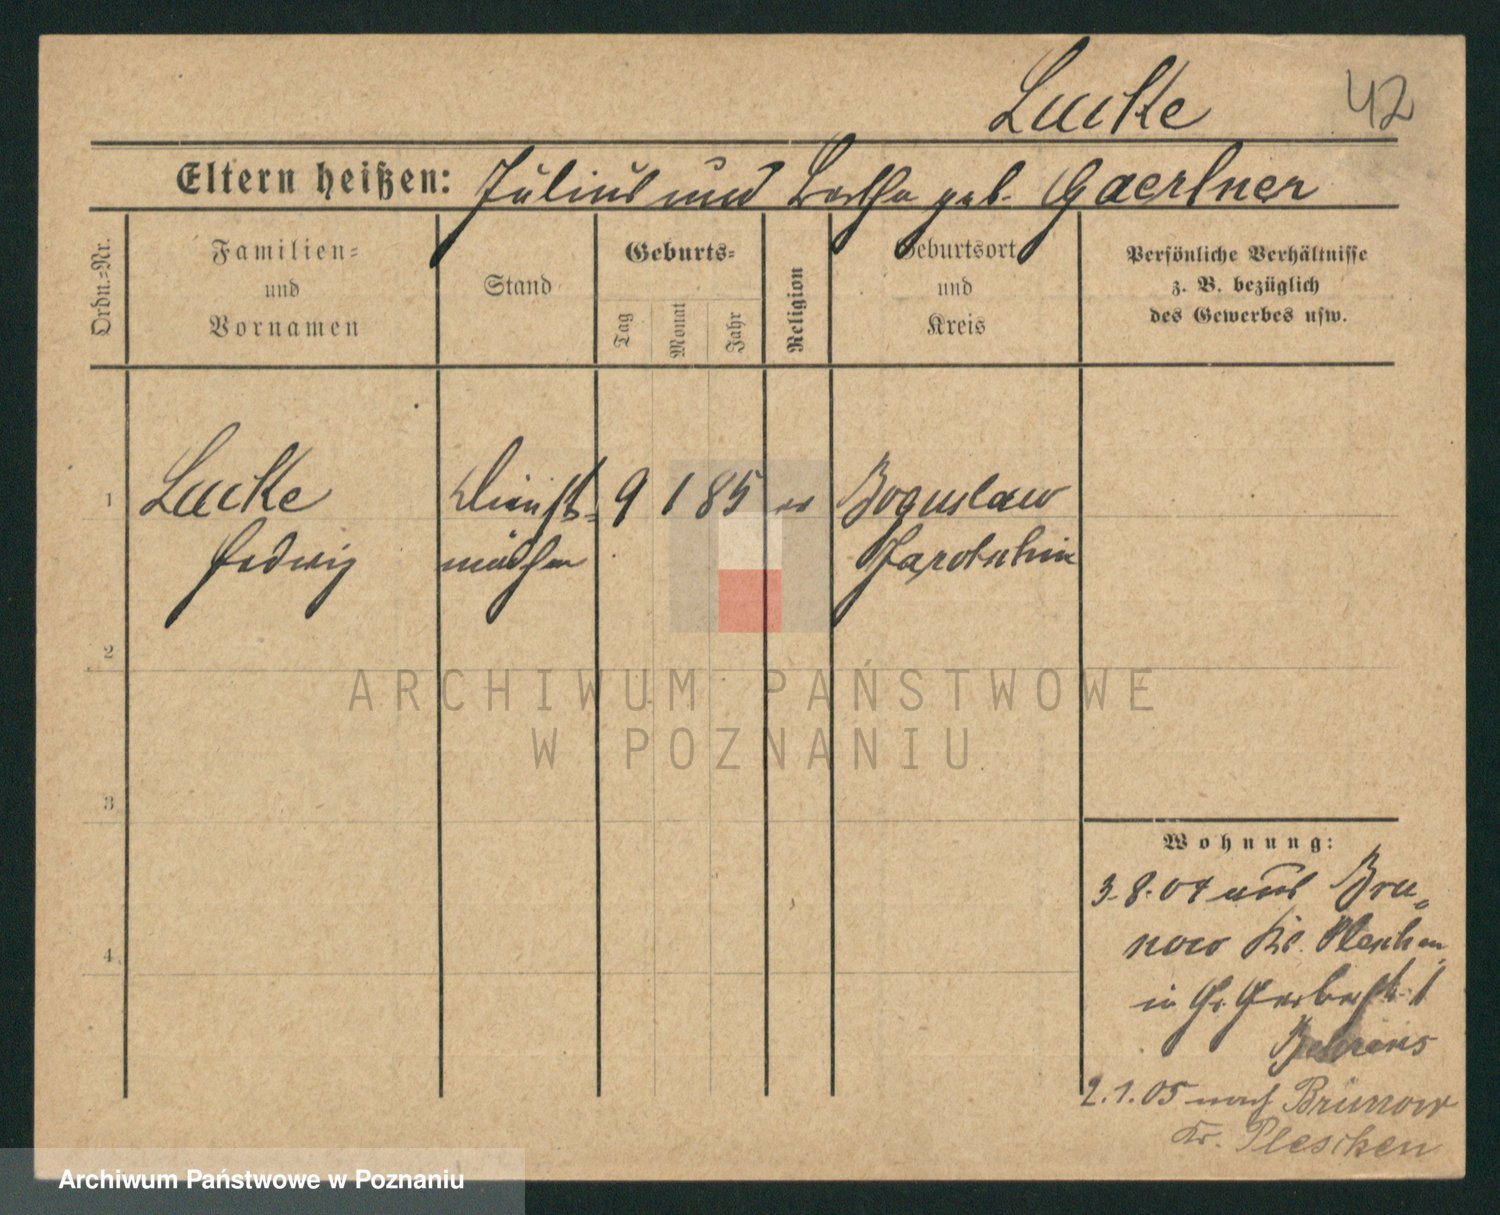 Lucke 42
Eltern heißen: Julius und Bertha geb. Gaertner
Ordn.=Nr.
Familien=
und
Vornamen
Stand
Geburts=
Tag
Monat
Jahr
Religion
Geburtsort
und
Kreis
Persönliche Verhältnisse
z. B. bezüglich
des Gewerbes usw.
1 Lucke Dienst= 9 1 85 ev Boguslaw
Hedwig mädchen Jarotschin
2
ARCHIWUM PAŃSTWOWE
W POZNANIU
3
Wohnung:
3.8.04 aus Bru=
now Kr. Pleschen
4
in Gr. Gerberstr. 1
Behrens
2.1.05 nach Brunow
Kr. Pleschen
Archiwum Państwowe w Poznaniu